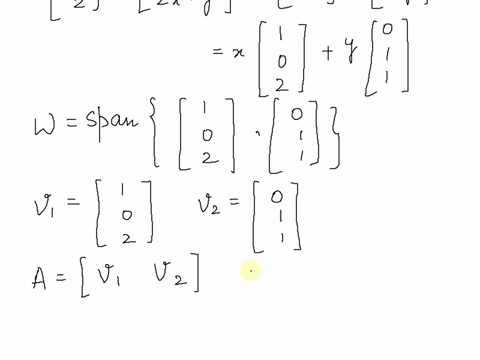 [2] [2x + y]
= x [1 0 2] + y [0 1 1]
W = span { [1 0 2] , [0 1 1] }
V₁ = [1 0 2] V₂ = [0 1 1]
A = [ V₁ V₂ ]